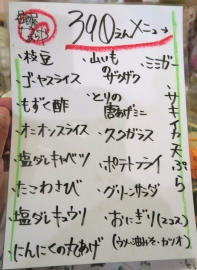 390えんメニュー
・枝豆
・ゴーヤスライス
・もずく酢
・オニオンスライス
・塩ダレキャベツ
・たこわさび
・塩ダレキュウリ
・にんにくの丸あげ
・山いもの
千切り
・とりの
唐あげミニ
・スクガラス
・ポテトフライ
・グリーンサラダ
・おにぎり(2コ)
(ウメ・油みそ・カツオ)
・ミミガー
・サキイカ天ぷら